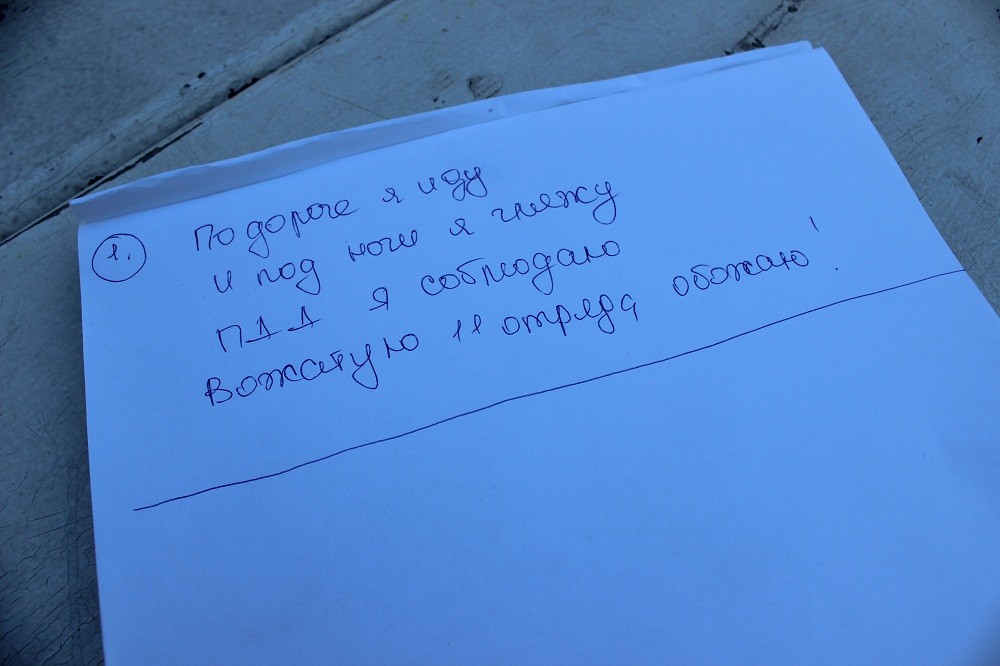 1. По дороге я иду
и под ноги я гляжу
ПДД я соблюдаю
Вожатую 11 отряда обожаю!